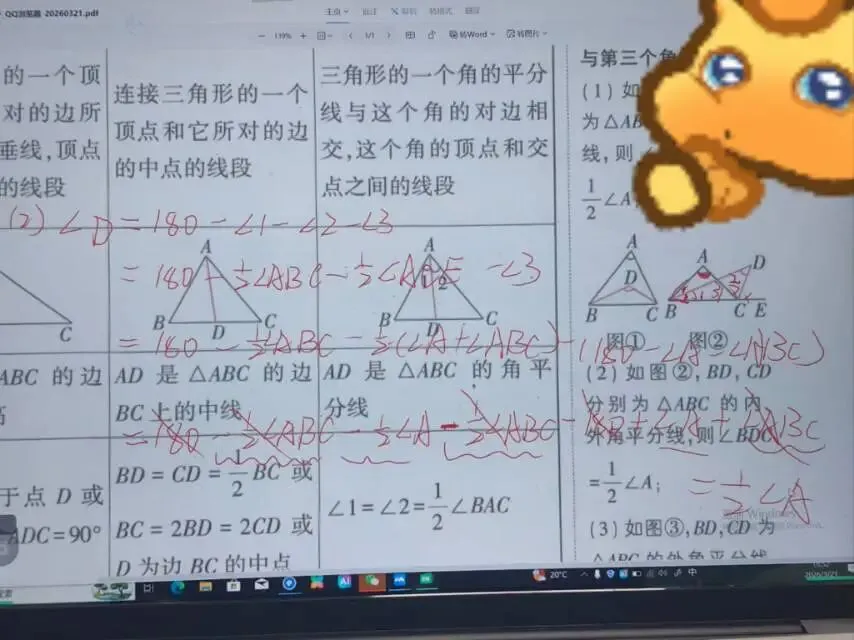 QQ浏览器 20260321.pdf
主页
批注
转格式
139%
1/1
转Word
转图片
的一个顶
对的边所
垂线,顶点
的线段
连接三角形的一个
顶点和它所对的边
的中点的线段
三角形的一个角的平分
线与这个角的对边相
交,这个角的顶点和交
点之间的线段
与第三个角
(1) 如
为△AB
线,则
1/2∠A
(2) ∠D = 180 - ∠1 - ∠2 - ∠3
= 180 - 1/2∠ABC - 1/2∠ACE - ∠3
= 180 - 1/2∠ABC - 1/2(∠A + ∠ABC) - (180 - ∠A - ∠ABC)
= 180 - 1/2∠ABC - 1/2∠A - 1/2∠ABC - 180 + ∠A + ∠ABC
= 1/2∠A
C
A
B D C
A
1 2
B D C
A
D
B C
A
D
B C E
图① 图②
ABC 的边
AD 是 △ABC 的边
BC 上的中线
AD 是 △ABC 的角平
分线
(2) 如图②, BD, CD
分别为 △ABC 的内
外角平分线,则∠BDC
=1/2∠A;
于点 D 或
ADC=90°
BD = CD = 1/2 BC 或
BC = 2BD = 2CD 或
D 为边 BC 的中点
∠1 = ∠2 = 1/2∠BAC
(3) 如图③, BD, CD 为
△ABC 的外角平分线
20°C
中
2026/3/21